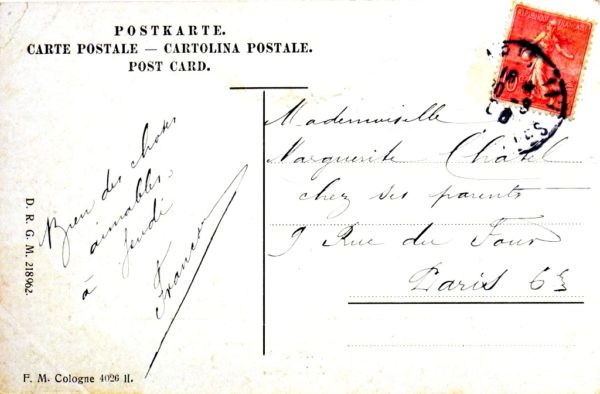 POSTKARTE.
CARTE POSTALE — CARTOLINA POSTALE.
POST CARD.
REPUBLIQUE FRANÇAISE
Mademoiselle
Marguerite Chatel
chez ses parents
9 Rue du Four
Paris 6e
Bien des choses
aimables.
à jeudi
D. R. G. M. 218962.
F. M. Cologne 4026 II.